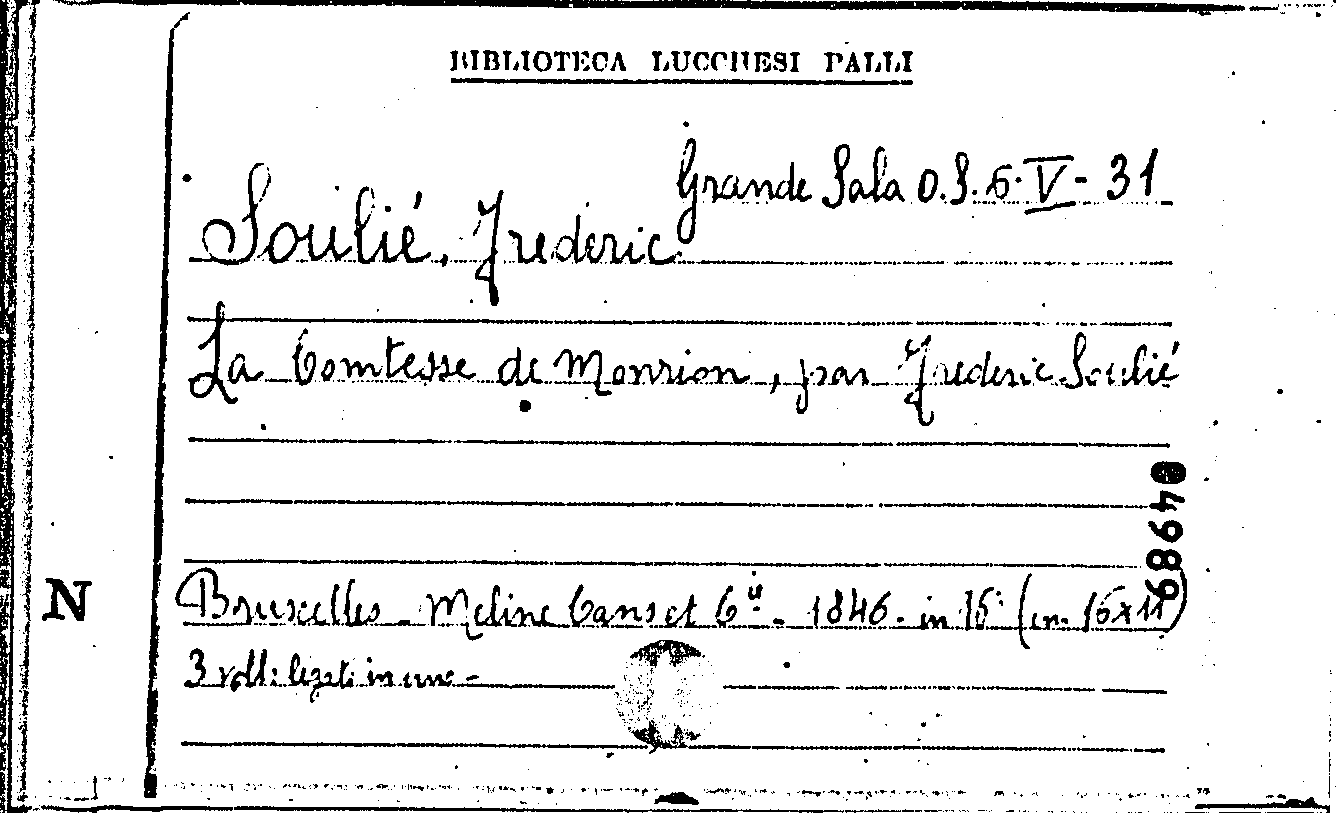 BIBLIOTECA LUCCHESI PALLI
Grande Sala O.S. 6. V - 31
Soulié, Frederic
La Comtesse de Monrion, par Frederic Soulié
04989
N
Bruxelles - Meline Cans et C.ie - 1846 - in 16° (cm. 16x11)
3 voll: legati in uno -